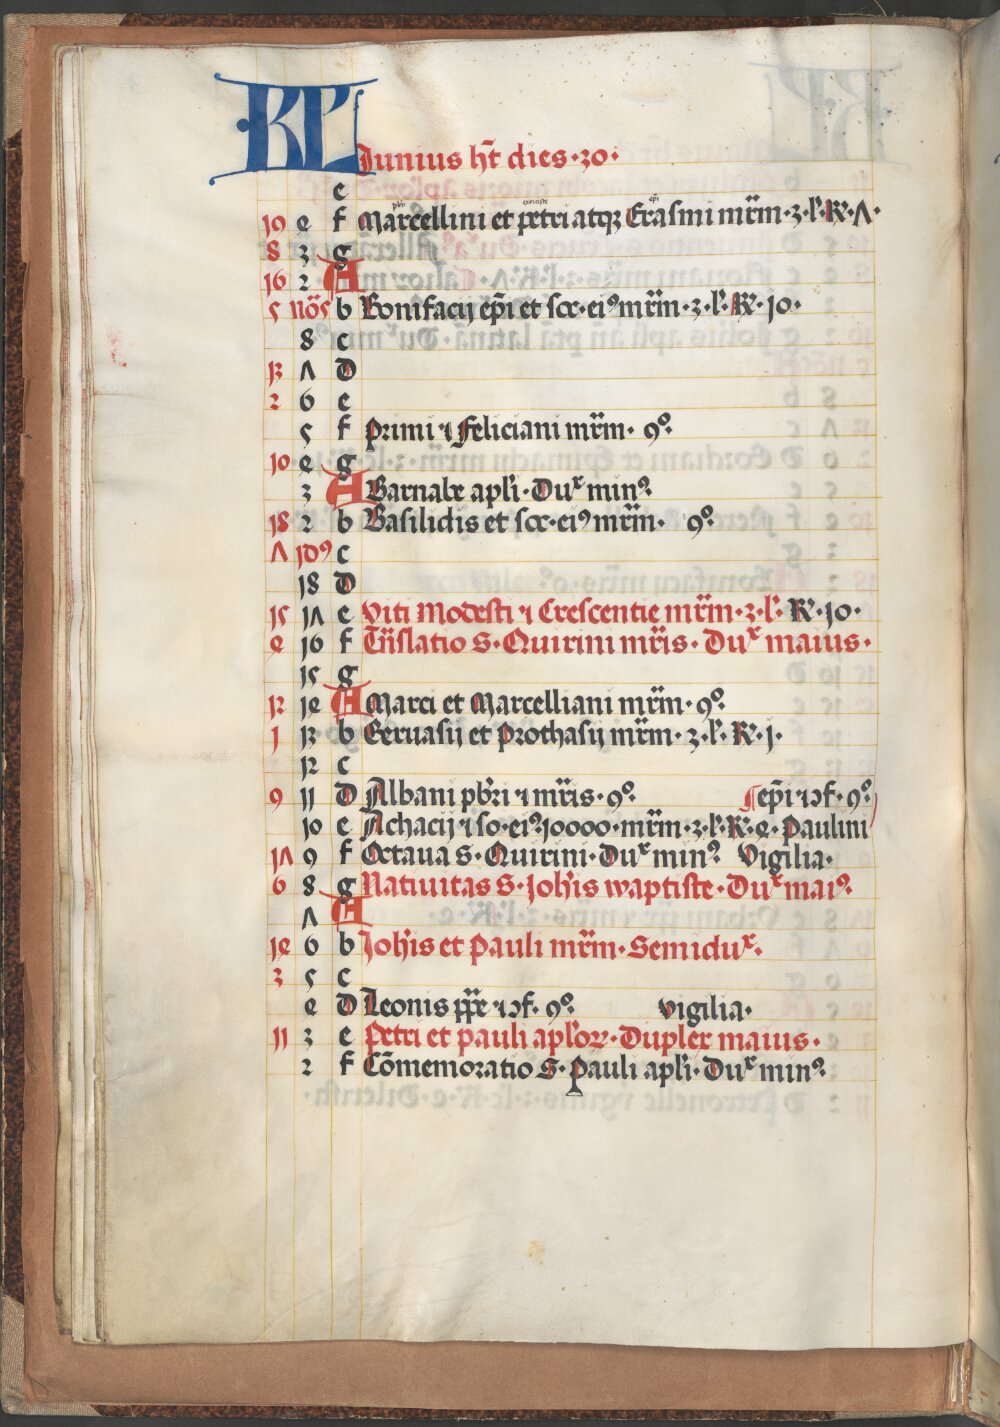 KL Junius hꝫt dies · 30 ·
e
19 e f Marcellini et petri atqꝫ Erasmi mr̃m · 3 · l' · R · Λ ·
8 3 g
16 2 A
5 nōs b Bonifacij ep̃i et soc · eiꝰ mr̃m · 3 · l' · R · 10 ·
8 c
13 Λ d
2 6 e
5 f Primi ⁊ Feliciani mr̃m · 9ꝰ
10 e g
3 A Barnabe apl'i · Dux minꝰ
18 2 b Basilidis et soc · eiꝰ mr̃m · 9ꝰ
Λ idꝰ c
18 d
15 1Λ e Viti Modesti ⁊ Crescentie mr̃m · 3 · l' · R · 10 ·
e 16 f Tñslatio S · Quirini mr̃is · Dux maius ·
15 g
12 1e A Marci et Marcelliani mr̃m · 9ꝰ
1 13 b Geruasij et Prothasij mr̃m · 3 · l' · R · j ·
12 c
9 11 d Albani pb̃ri ⁊ mr̃is · 9ꝰ ep̃i ⁊ ↄf · 9ꝰ
10 e Achacij ⁊ so · eiꝰ 10000 · mr̃m · 3 · l' · R · e · Paulini
1Λ 9 f Octaua S · Quirini · Dux minꝰ Vigilia ·
6 8 g Natiuitas S · Joh'is waptiste · Dux maiꝰ
Λ A
1e 6 b Joh'is et Pauli mr̃m · Semidux ·
3 5 c
e d Leonis pp̃e ⁊ ↄf · 9ꝰ vigilia ·
11 3 e Petri et pauli apl'oꝝ · Duplex maius ·
2 f Cōmemoratio S · Pauli apl'i · Dux minꝰ